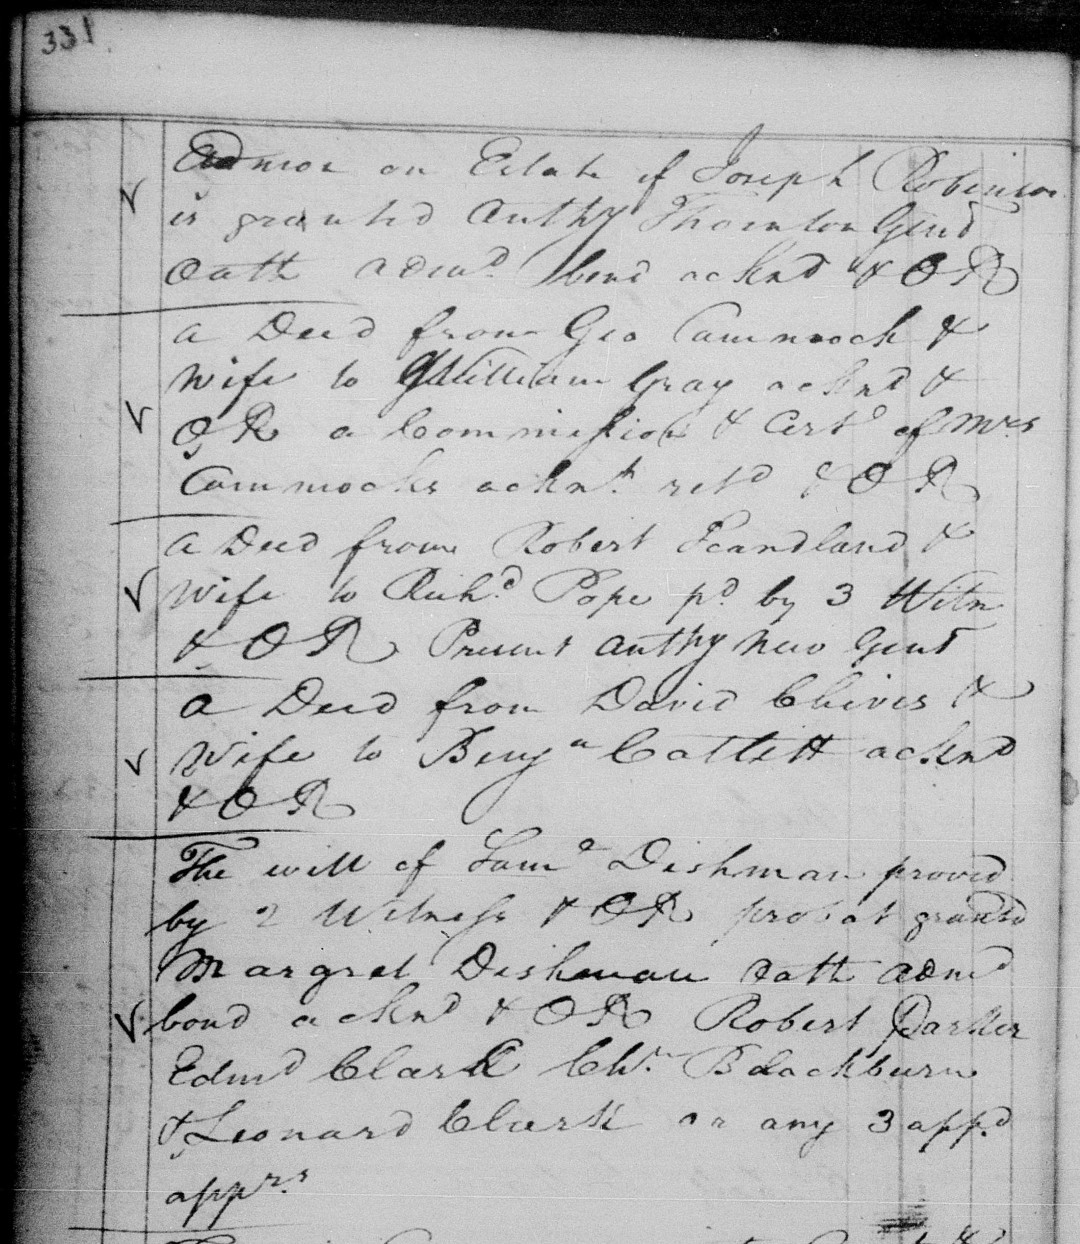 331
Admon on Estate of Joseph Robinson
is granted Anthy Thornton Gent
Oath admd bond acknd & OR
a Deed from Geo Cammock &
Wife to William Gray acknd &
OR a Commission & Cert of Mrs
Cammocks acknt retd & OR
a Deed from Robert Scandland &
Wife to Richd Pope pd by 3 Witn
& OR Present Anthy New Gent
a Deed from David Chives &
Wife to Benja Catlett acknd
& OR
The will of Saml Dishman provd
by 2 Witness & OR probat grantd
Margret Dishman Oath admd
bond acknd & OR Robert Parker
Edmd Clark Chs Blackburn
& Leonard Clark or any 3 appd
apprs